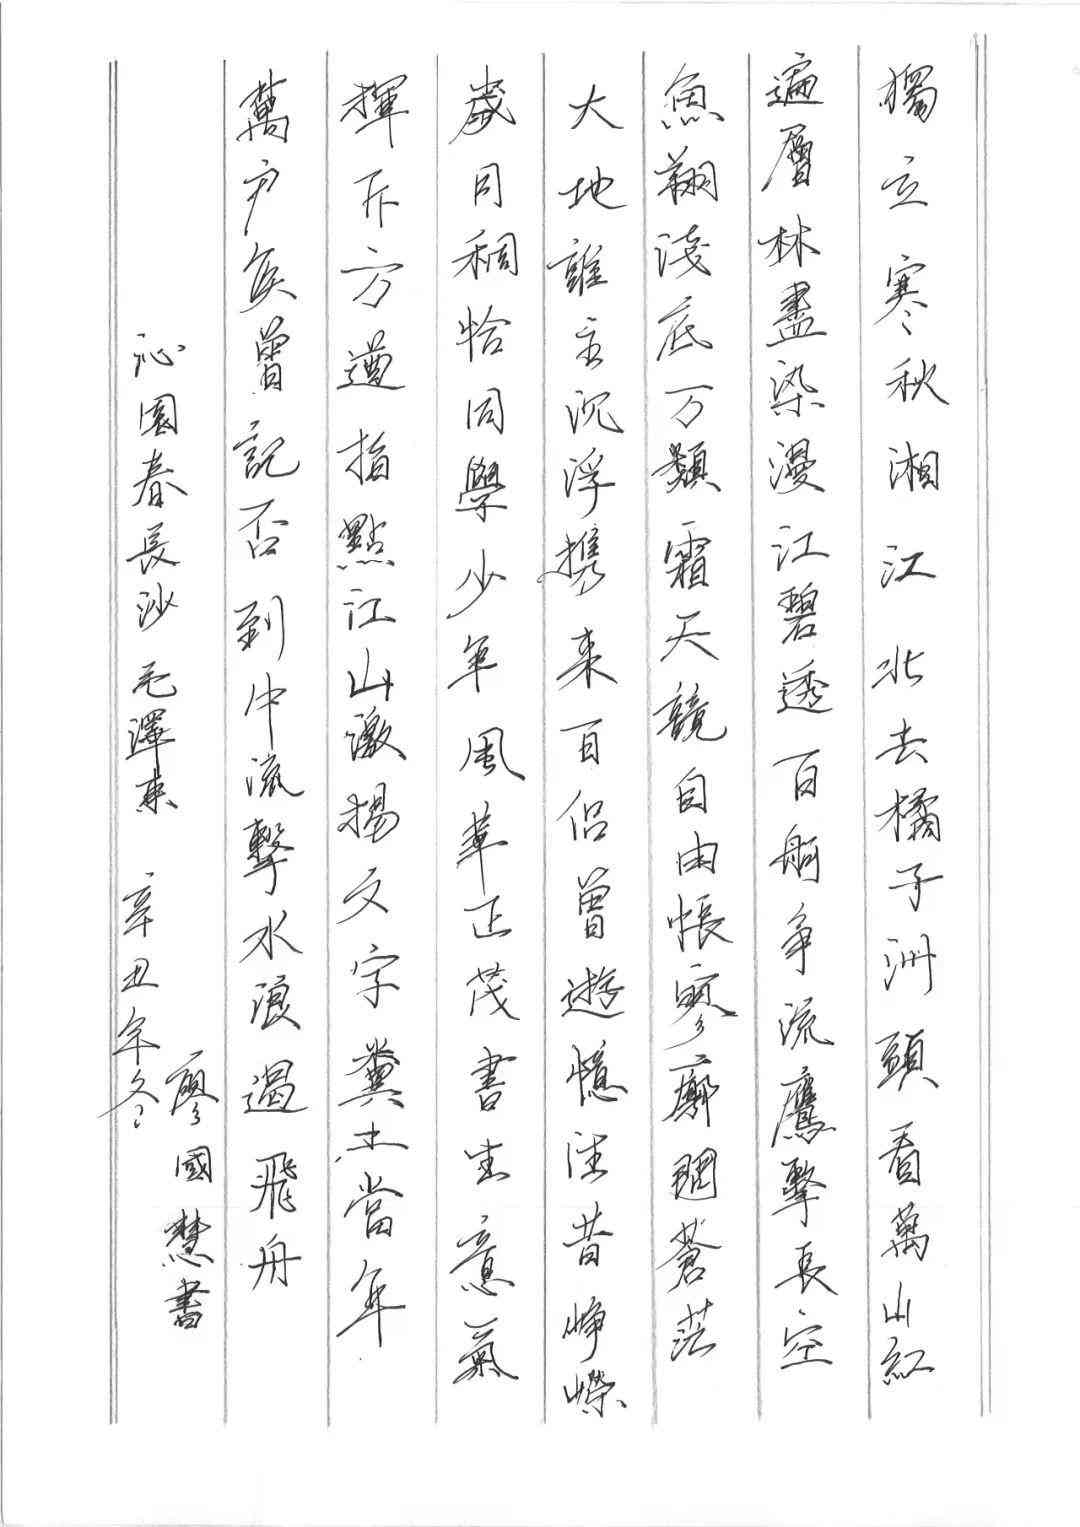 獨立寒秋湘江北去橘子洲頭看萬山紅
遍層林盡染漫江碧透百舸争流鷹擊長空
魚翔淺底万類霜天競自由悵寥廓問蒼茫
大地誰主沉浮携来百侣曾遊憶往昔崢嶸
歲月稠恰同學少年風華正茂書生意氣
揮斥方遒指點江山激揚文字糞土當年
萬户侯曾記否到中流擊水浪遏飛舟
沁園春長沙毛澤東 辛丑年冬
廖國慧書